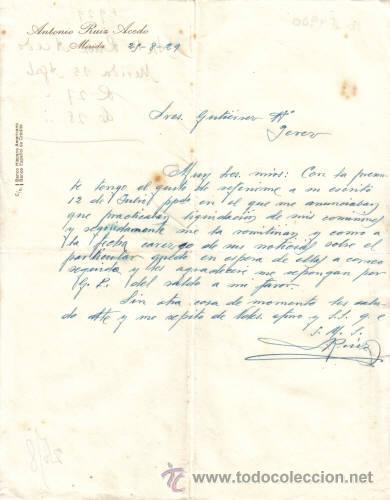 Antonio Ruiz Acedo
Mérida 29-8-29
C/c. Banco Hispano Americano
Banco Español de Crédito
Sres. Gutiérrez Hº
Jerez
Muy Sres. mios: Con la presen-
te tengo el gusto de referirme a su escrito
12 de Julio ppdo en el que me anunciaban
que practicaban liquidación de mis comisiones
y seguidamente me la remitirian y como a
la fecha carezco de sus noticias sobre el
particular quedo en espera de ellas a correo
seguido y les agradeceré me repongan por
G. P. del saldo a mi favor.
Sin otra cosa de momento les salu-
da Atte y me repito de Vdes. afmo y S.S. q. e
s. m. s.
Ruiz
todocoleccion
www.todocoleccion.net